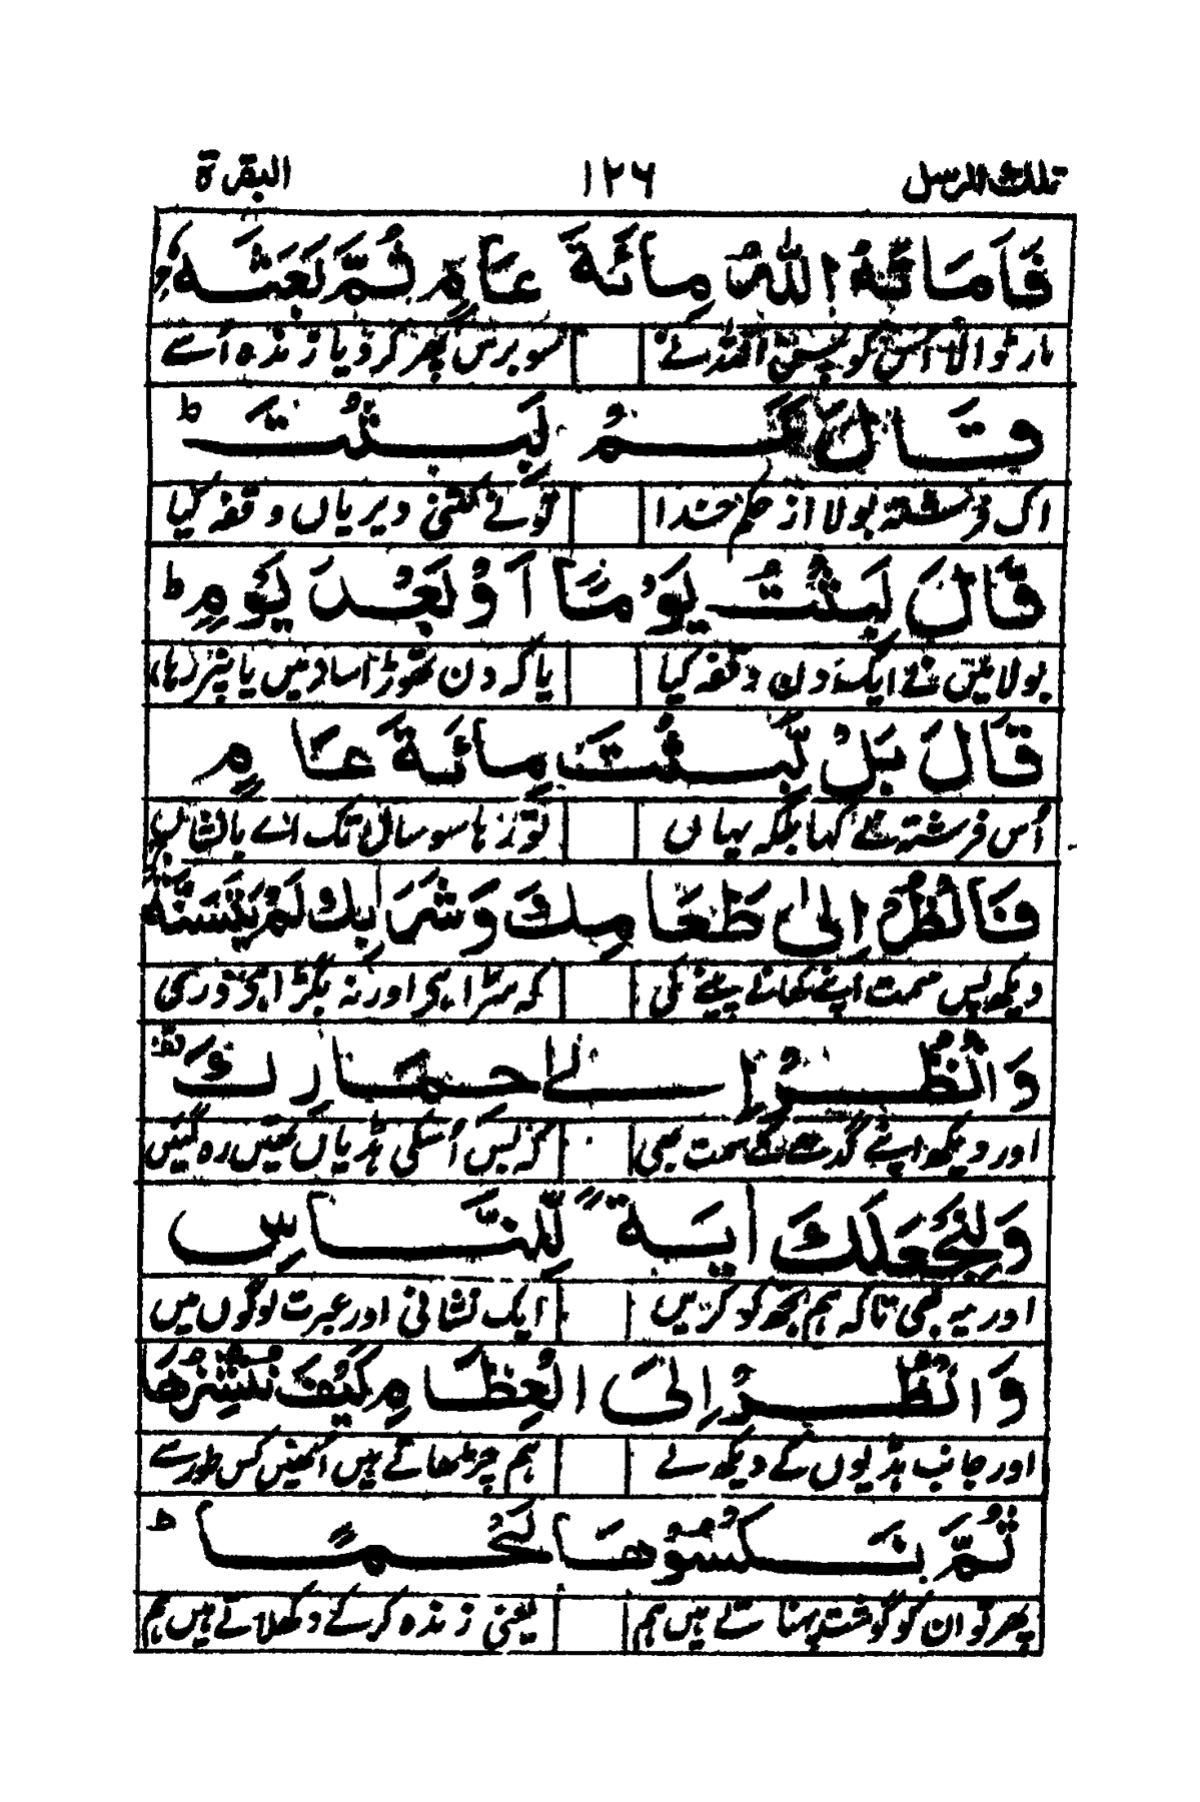 تلك الرسل ١٢٦ البقرة
فَاَمَاتَهُ اللّٰهُ مِائَةَ عَامٍ ثُمَّ بَعَثَهٗ ط
مار ڈالا اس کو پس اللہ نے سو برس پھر کر دیا زندہ اُسے
قَالَ كَمْ لَبِثْتَ ط
اک فرشتہ بولا از حکم خدا تو نے کتنی دیر یاں وقفہ کیا
قَالَ لَبِثْتُ يَوْمًا اَوْ بَعْدَ يَوْمٍ ط
بولا میں نے ایک دن وقفہ کیا یا کہ دن تھوڑا سا دمیں یا
قَالَ بَلْ لَّبِثْتَ مِائَةَ عَامٍ
اُس فرشتہ نے کہا بلکہ یہاں تو رہا سو سال تک اے
فَانْظُرْ اِلٰى طَعَامِكَ وَشَرَابِكَ لَمْ يَتَسَنَّهْ
دیکھ پس سمت اپنے کھانے پینے کی کہ سڑا ہی اور نہ بگڑا
وَانْظُرْ اِلٰى حِمَارِكَ
اور دیکھ اپنے گدھے کے سمت بھی کہ بس اُسکی ہڈیاں تھیں رہ گئیں
وَلِنَجْعَلَكَ اٰيَةً لِّلنَّاسِ
اور یہ بھی تاکہ ہم تجھ کو کریں ایک نشانی اور عبرت لوگوں میں
وَانْظُرْ اِلَى الْعِظَامِ كَيْفَ نُنْشِزُهَا
اور جانب ہڈیوں کے دیکھ لے ہم چڑھاتے ہیں انھیں کس طور سے
ثُمَّ نَكْسُوْهَا لَحْمًا ط
پھر تو ان کو گوشت پہناتے ہیں ہم یعنی زندہ کر کے دکھلاتے ہیں ہم